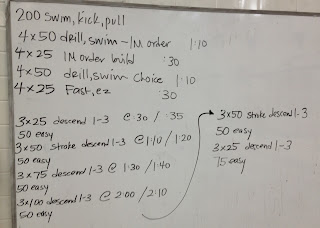 200 swim, kick, pull
4x50 drill, swim - IM order 1:10
4x25 IM order build :30
4x50 drill, swim choice 1:10
4x25 Fast, ez :30
3x25 descend 1-3 @ :30 / :35
50 easy
3x50 stroke descend 1-3 @ 1:10 / 1:20
50 easy
3x75 descend 1-3 @ 1:30 / 1:40
50 easy
3x100 descend 1-3 @ 2:00 / 2:10
50 easy
3x50 stroke descend 1-3
50 easy
3x25 descend 1-3
75 easy